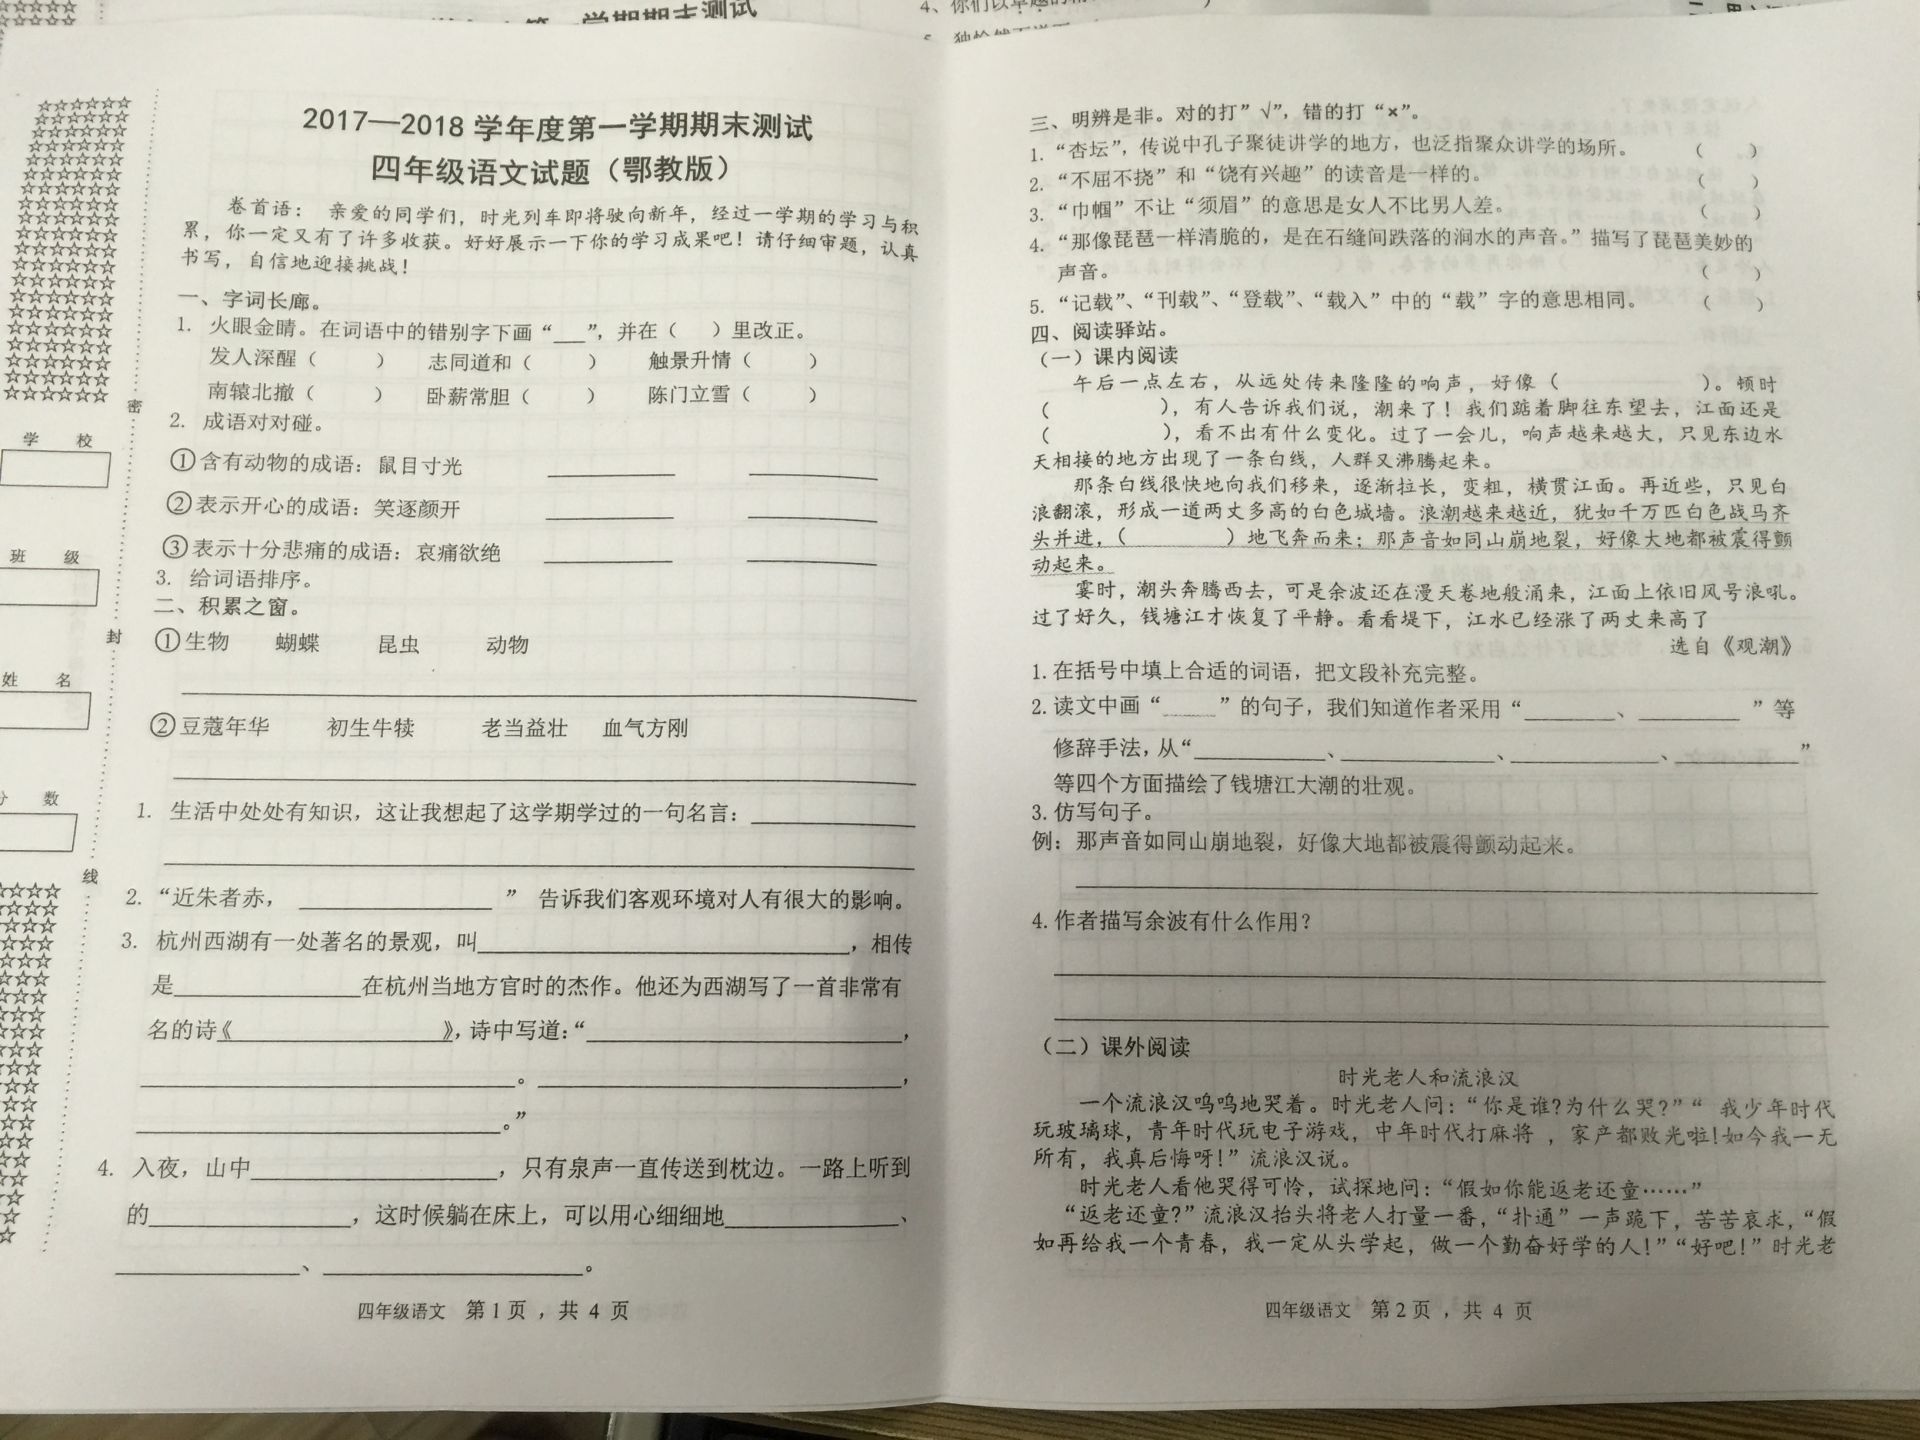 学期期末测试
4、你们以卓越的
2017—2018 学年度第一学期期末测试
四年级语文试题（鄂教版）
卷首语： 亲爱的同学们，时光列车即将驶向新年，经过一学期的学习与积
累，你一定又有了许多收获。好好展示一下你的学习成果吧！请仔细审题，认真
书写，自信地迎接挑战！
一、字词长廊。
1. 火眼金睛。在词语中的错别字下画“___”，并在（ ）里改正。
发人深醒（ ） 志同道和（ ） 触景升情（ ）
南辕北撤（ ） 卧薪常胆（ ） 陈门立雪（ ）
2. 成语对对碰。
①含有动物的成语：鼠目寸光 ________ ________
②表示开心的成语：笑逐颜开 ________ ________
③表示十分悲痛的成语：哀痛欲绝 ________ ________
3. 给词语排序。
二、积累之窗。
①生物 蝴蝶 昆虫 动物
②豆蔻年华 初生牛犊 老当益壮 血气方刚
1. 生活中处处有知识，这让我想起了这学期学过的一句名言：________
2. “近朱者赤，________” 告诉我们客观环境对人有很大的影响。
3. 杭州西湖有一处著名的景观，叫________，相传
是________在杭州当地方官时的杰作。他还为西湖写了一首非常有
名的诗《________》，诗中写道：“________，
________。________，
________。”
4. 入夜，山中________，只有泉声一直传送到枕边。一路上听到
的________，这时候躺在床上，可以用心细细地________、
________、________。
四年级语文 第 1 页 ，共 4 页
学 校
班 级
姓 名
分 数
密
封
线
三、明辨是非。对的打”√”，错的打“×”。
1. “杏坛”，传说中孔子聚徒讲学的地方，也泛指聚众讲学的场所。 （ ）
2. “不屈不挠”和“饶有兴趣”的读音是一样的。 （ ）
3. “巾帼”不让“须眉”的意思是女人不比男人差。 （ ）
4. “那像琵琶一样清脆的，是在石缝间跌落的涧水的声音。”描写了琵琶美妙的
声音。 （ ）
5. “记载”、“刊载”、“登载”、“载入”中的“载”字的意思相同。 （ ）
四、阅读驿站。
（一）课内阅读
午后一点左右，从远处传来隆隆的响声，好像（ ）。顿时
（ ），有人告诉我们说，潮来了！我们踮着脚往东望去，江面还是
（ ），看不出有什么变化。过了一会儿，响声越来越大，只见东边水
天相接的地方出现了一条白线，人群又沸腾起来。
那条白线很快地向我们移来，逐渐拉长，变粗，横贯江面。再近些，只见白
浪翻滚，形成一道两丈多高的白色城墙。浪潮越来越近，犹如千万匹白色战马齐
头并进，（ ）地飞奔而来；那声音如同山崩地裂，好像大地都被震得颤
动起来。
霎时，潮头奔腾西去，可是余波还在漫天卷地般涌来，江面上依旧风号浪吼。
过了好久，钱塘江才恢复了平静。看看堤下，江水已经涨了两丈来高了
选自《观潮》
1. 在括号中填上合适的词语，把文段补充完整。
2. 读文中画“____”的句子，我们知道作者采用“________、________ ”等
修辞手法，从“________、________、________、________”
等四个方面描绘了钱塘江大潮的壮观。
3. 仿写句子。
例：那声音如同山崩地裂，好像大地都被震得颤动起来。
4. 作者描写余波有什么作用？
（二）课外阅读
时光老人和流浪汉
一个流浪汉呜呜地哭着。时光老人问：“你是谁?为什么哭?”“ 我少年时代
玩玻璃球，青年时代玩电子游戏，中年时代打麻将 ，家产都败光啦!如今我一无
所有，我真后悔呀!”流浪汉说。
时光老人看他哭得可怜，试探地问：“假如你能返老还童……”
“返老还童?”流浪汉抬头将老人打量一番，“扑通”一声跪下，苦苦哀求，“假
如再给我一个青春，我一定从头学起，做一个勤奋好学的人!”“好吧!”时光老
四年级语文 第 2 页 ，共 4 页